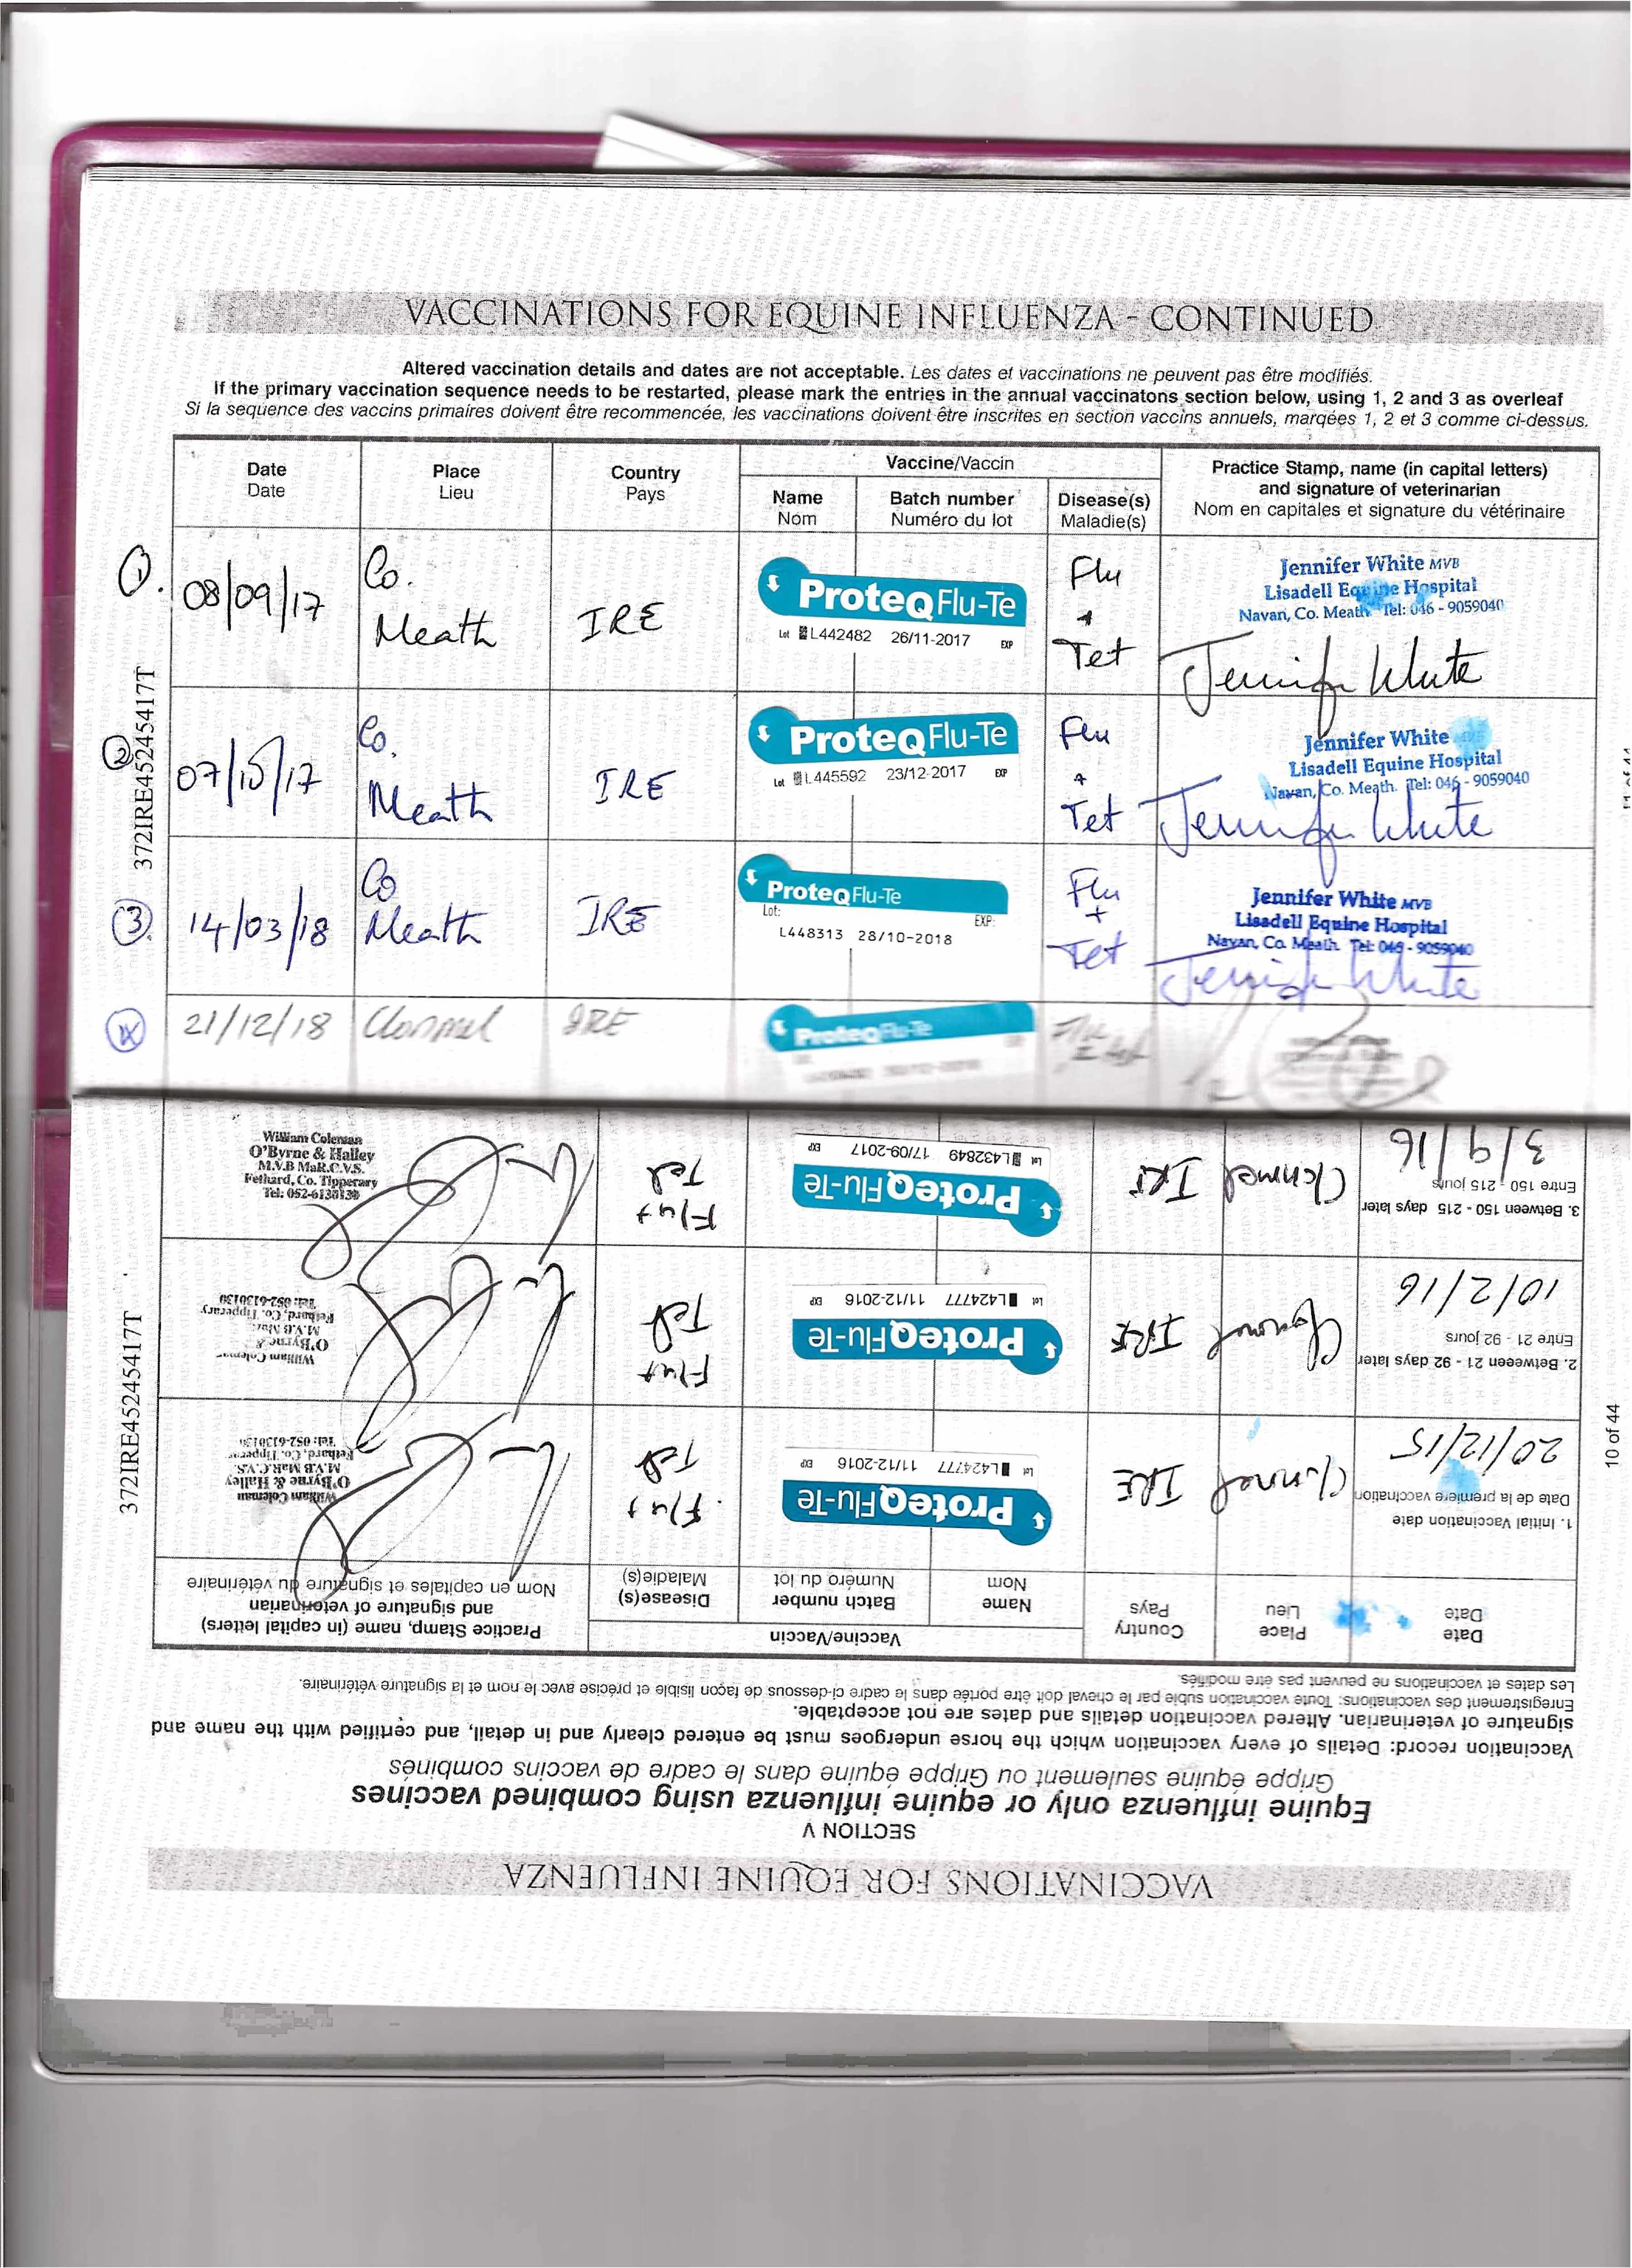 VACCINATIONS FOR EQUINE INFLUENZA - CONTINUED
Altered vaccination details and dates are not acceptable. Les dates et vaccinations ne peuvent pas être modifiés.
If the primary vaccination sequence needs to be restarted, please mark the entries in the annual vaccinatons section below, using 1, 2 and 3 as overleaf
Si la sequence des vaccins primaires doivent être recommencée, les vaccinations doivent être inscrites en section vaccins annuels, marqées 1, 2 et 3 comme ci-dessus.
Date
Date
Place
Lieu
Country
Pays
Vaccine/Vaccin
Name
Nom
Batch number
Numéro du lot
Disease(s)
Maladie(s)
Practice Stamp, name (in capital letters)
and signature of veterinarian
Nom en capitales et signature du vétérinaire
372IRE45245417T
1.
08/09/17
Co.
Meath
IRE
ProteqFlu-Te
Lot L442482 26/11-2017 EXP
Flu
+
Tet
Jennifer White MVB
Lisadell Equine Hospital
Navan, Co. Meath. Tel: 046 - 9059040
Jennifer White
2
07/10/17
Co.
Meath
IRE
ProteqFlu-Te
Lot L445592 23/12-2017 EXP
Flu
+
Tet
Jennifer White
Lisadell Equine Hospital
Navan, Co. Meath. Tel: 046 - 9059040
Jennifer White
3.
14/03/18
Co
Meath
IRE
ProteqFlu-Te
Lot: EXP:
L448313 28/10-2018
Flu
+
Tet
Jennifer White MVB
Lisadell Equine Hospital
Navan, Co. Meath. Tel: 046 - 9059040
Jennifer White
21/12/18
Clonmel
IRE
ProteqFlu-Te
VACCINATIONS FOR EQUINE INFLUENZA
SECTION V
Equine influenza only or equine influenza using combined vaccines
Grippe équine seulement ou Grippe équine dans le cadre de vaccins combinés
Vaccination record: Details of every vaccination which the horse undergoes must be entered clearly and in detail, and certified with the name and
signature of veterinarian. Altered vaccination details and dates are not acceptable.
Enregistrement des vaccinations: Toute vaccination subie par le cheval doit être portée dans le cadre ci-dessous de façon lisible et précise avec le nom et la signature vétérinaire.
Les dates et vaccinations ne peuvent pas être modifiés.
Date
Date
Place
Lieu
Country
Pays
Vaccine/Vaccin
Name
Nom
Batch number
Numéro du lot
Disease(s)
Maladie(s)
Practice Stamp, name (in capital letters)
and signature of veterinarian
Nom en capitales et signature du vétérinaire
1. Initial Vaccination date
Date de la premiere vaccination
20/12/15
Clonmel
IRE
ProteqFlu-Te
Lot L424777 11/12-2016 EXP
Flu +
Tet
William Coleman
O'Byrne & Halley
M.V.B MaR.C.V.S.
Fethard, Co. Tipperary
Tel: 052-6130130
2. Betweeen 21 - 92 days later
Entre 21 - 92 jours
10/2/16
Clonmel
IRE
ProteqFlu-Te
Lot L424777 11/12-2016 EXP
Flu +
Tet
William Coleman
O'Byrne &
M.V.B
Fethard, Co. Tipperary
Tel: 052-6130130
3. Between 150 - 215 days later
Entre 150 - 215 jours
3/9/16
Clonmel
IRE
ProteqFlu-Te
Lot L432849 17/09-2017 EXP
Flu +
Tet
William Coleman
O'Byrne & Halley
M.V.B MaR.C.V.S.
Fethard, Co. Tipperary
Tel: 052-6130130
372IRE45245417T
10 of 44